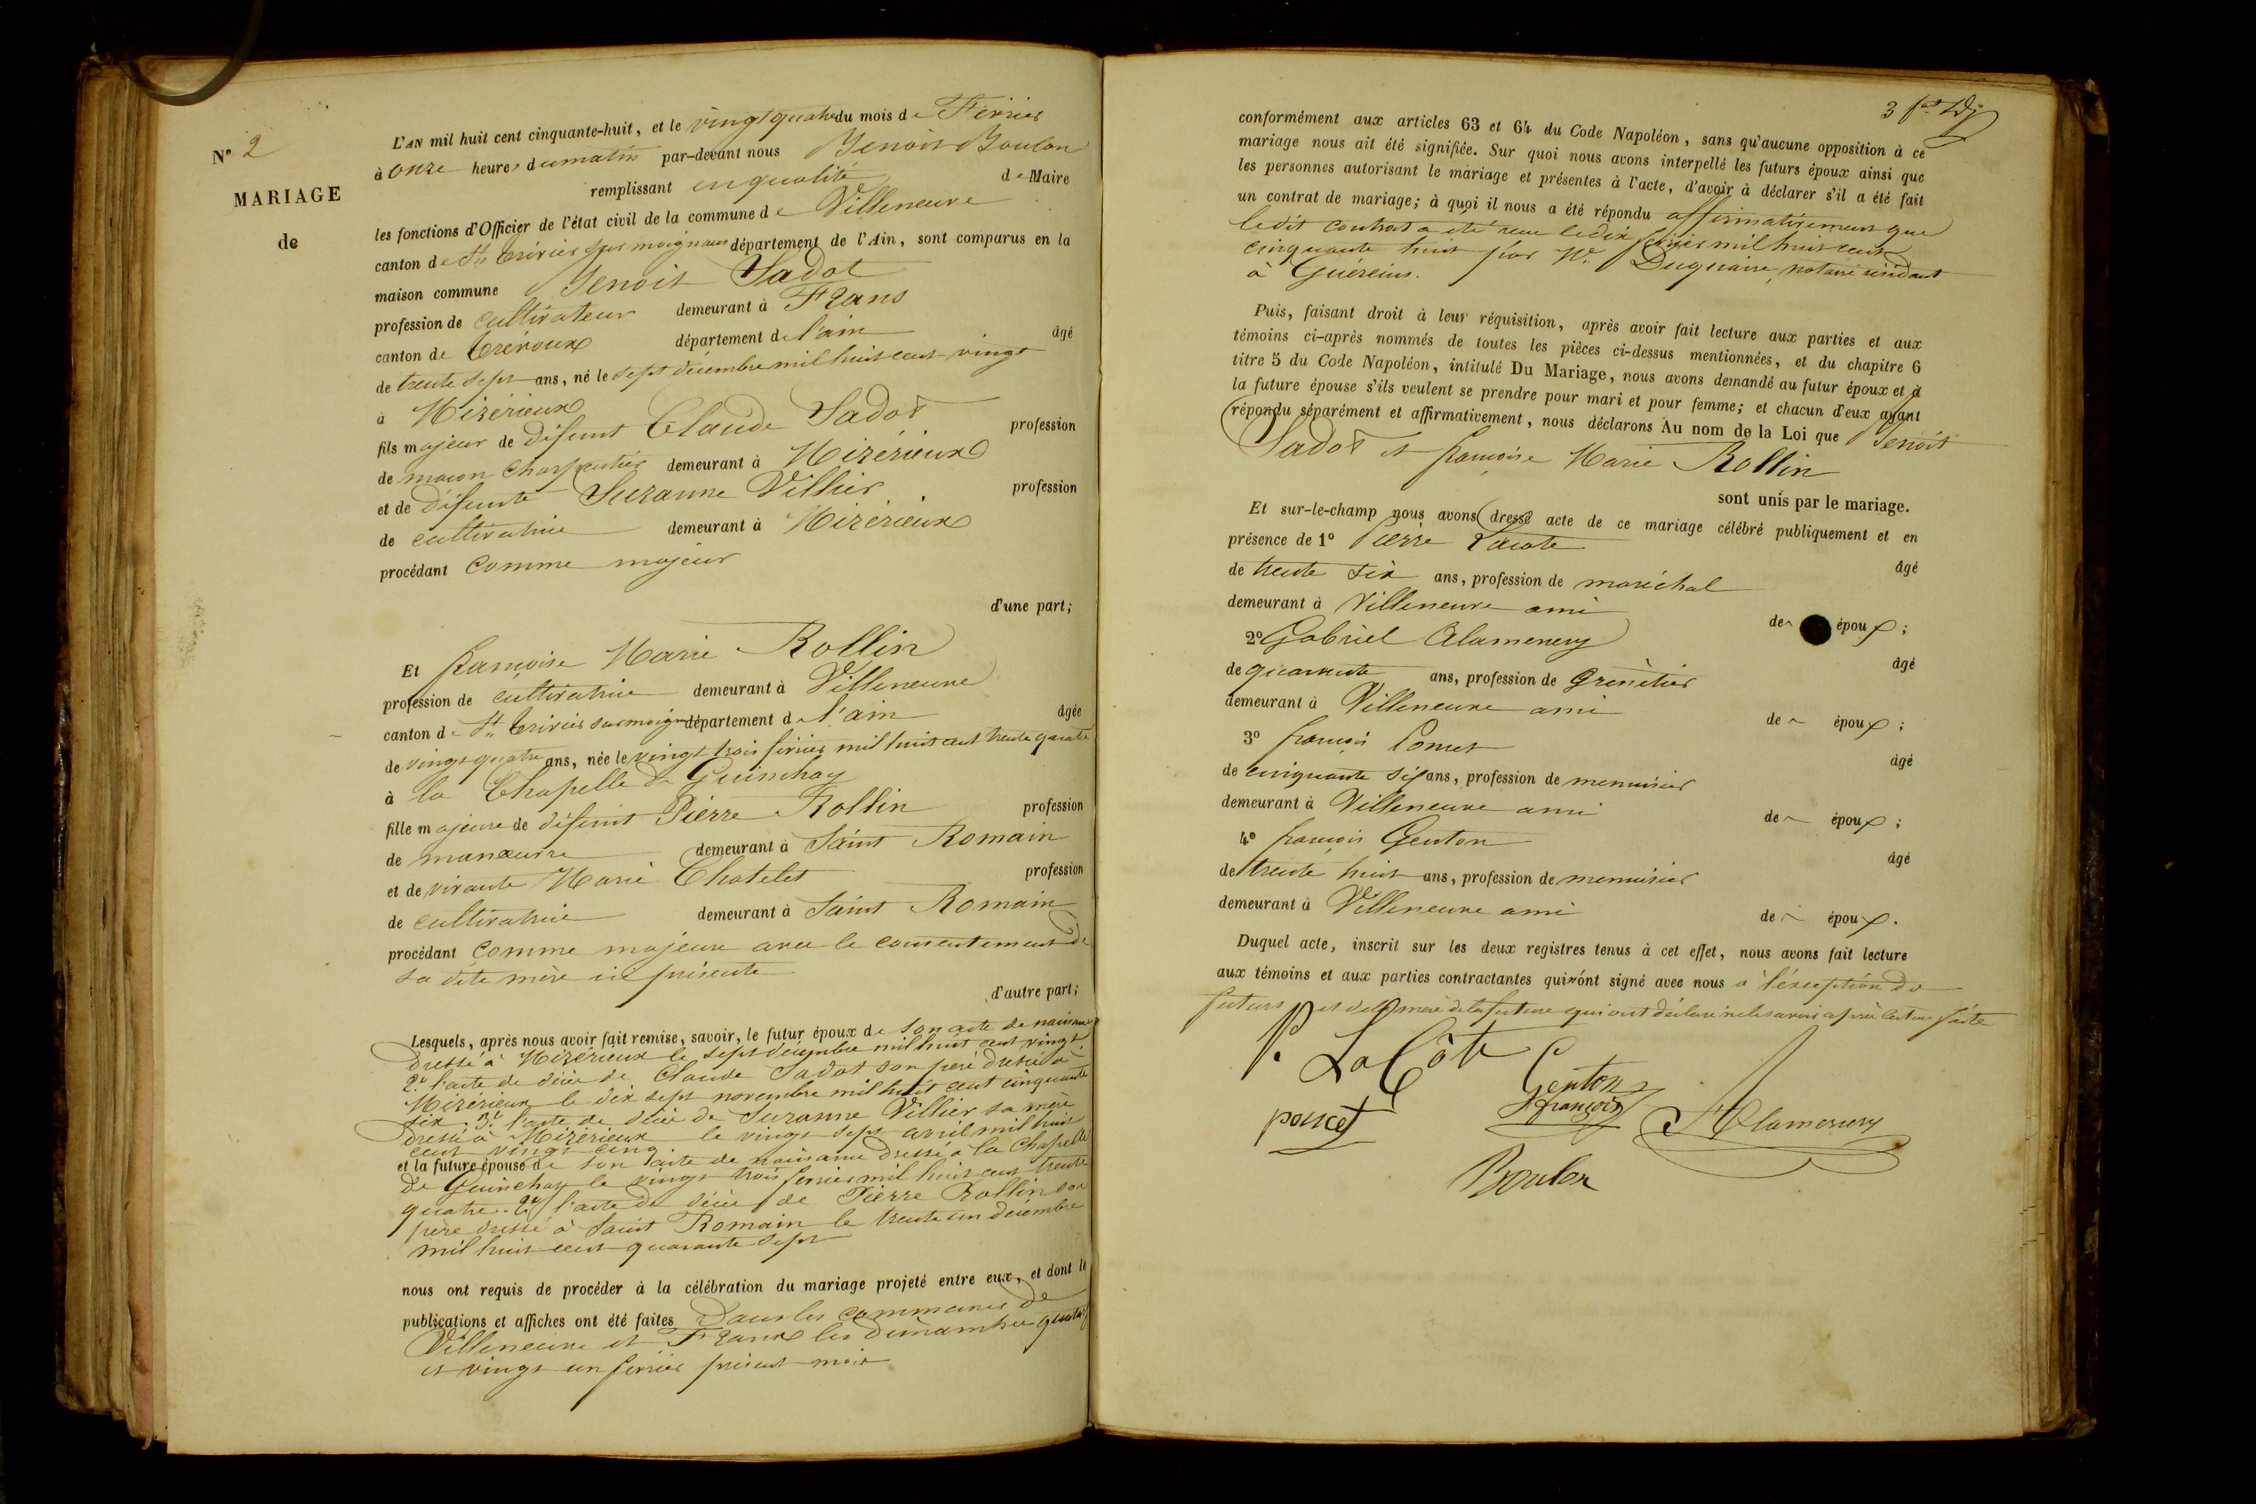 N° 2
MARIAGE
de
L'AN mil huit cent cinquante-huit, et le vingt quatre du mois de Février
à onze heures du matin par-devant nous Benoit Boulon
remplissant en qualité de Maire
les fonctions d'Officier de l'état civil de la commune de Villeneuve
canton de St Trivier sur moignans département de l'Ain, sont comparus en la
maison commune Benoit Sadot
profession de cultivateur demeurant à Frans
canton de Trévoux département de l'ain âgé
de trente sept ans, né le sept décembre mil huit cent vingt
à Mizérieux
fils majeur de défunt Claude Sadot profession
de maçon charpentier demeurant à Mizérieux
et de défunte Suzanne Villier profession
de cultivatrice demeurant à Mizérieux
procédant comme majeur
d'une part;
Et françoise Marie Rollin
profession de cultivatrice demeurant à Villeneuve
canton de St Trivier sur moign département de l'ain âgée
de vingt quatre ans, née le vingt trois février mil huit cent trente quatre
à la Chapelle de Guinchay
fille majeure de défunt Pierre Rollin profession
de manœuvre demeurant à Saint Romain
et de vivante Marie Chatelet profession
de cultivatrice demeurant à Saint Romain
procédant comme majeure avec le consentement de
sa dite mère ici présente
d'autre part;
Lesquels, après nous avoir fait remise, savoir, le futur époux de son acte de naissance
dressé à Mizérieux le sept décembre mil huit cent vingt
2° l'acte de décès de Claude Sadot son père dressé à
Mizérieux le dix sept novembre mil huit cent cinquante
six. 3° l'acte de décès de Suzanne Villier sa mère
dressé à Mizérieux le vingt sept avril mil huit
cent vingt cinq.
et la future épouse de son acte de naissance dressé à la Chapelle
de Guinchay le vingt trois février mil huit cent trente
quatre. 2° l'acte de décès de Pierre Rollin son
père dressé à Saint Romain le trente un décembre
mil huit cent quarante sept
nous ont requis de procéder à la célébration du mariage projeté entre eux, et dont le
publications et affiches ont été faites dans les communes de
Villeneuve et Frans les dimanches quatorze
et vingt un février présent mois
3
conformément aux articles 63 et 64 du Code Napoléon, sans qu'aucune opposition à ce
mariage nous ait été signifiée. Sur quoi nous avons interpellé les futurs époux ainsi que
les personnes autorisant le mariage et présentes à l'acte, d'avoir à déclarer s'il a été fait
un contrat de mariage; à quoi il nous a été répondu affirmativement que
le dit contrat a été reçu le dix février mil huit cent
cinquante huit par Me Duquaire, notaire résidant
à Guéreins.
Puis, faisant droit à leur réquisition, après avoir fait lecture aux parties et aux
témoins ci-après nommés de toutes les pièces ci-dessus mentionnées, et du chapitre 6
titre 5 du Code Napoléon, intitulé Du Mariage, nous avons demandé au futur époux et à
la future épouse s'ils veulent se prendre pour mari et pour femme; et chacun d'eux ayant
répondu séparément et affirmativement, nous déclarons Au nom de la Loi que Benoit
Sadot et françoise Marie Rollin
sont unis par le mariage.
Et sur-le-champ nous avons dressé acte de ce mariage célébré publiquement et en
présence de 1° Pierre Lacote âgé
de trente six ans, profession de maréchal
demeurant à Villeneuve ami de époux;
2° Gabriel Alamercery âgé
de quarante ans, profession de Grenetier
demeurant à Villeneuve ami de époux;
3° françois Poncet âgé
de cinquante six ans, profession de menuisier
demeurant à Villeneuve ami de époux;
4° françois Genton âgé
de trente huit ans, profession de menuisier
demeurant à Villeneuve ami de époux.
Duquel acte, inscrit sur les deux registres tenus à cet effet, nous avons fait lecture
aux témoins et aux parties contractantes qui ont signé avec nous à l'éxception de
futurs et de la mère de la future qui ont déclaré ne le savoir après lecture faite
P. La Côte
Genton
françois
poncet
Alamercery
Boulon